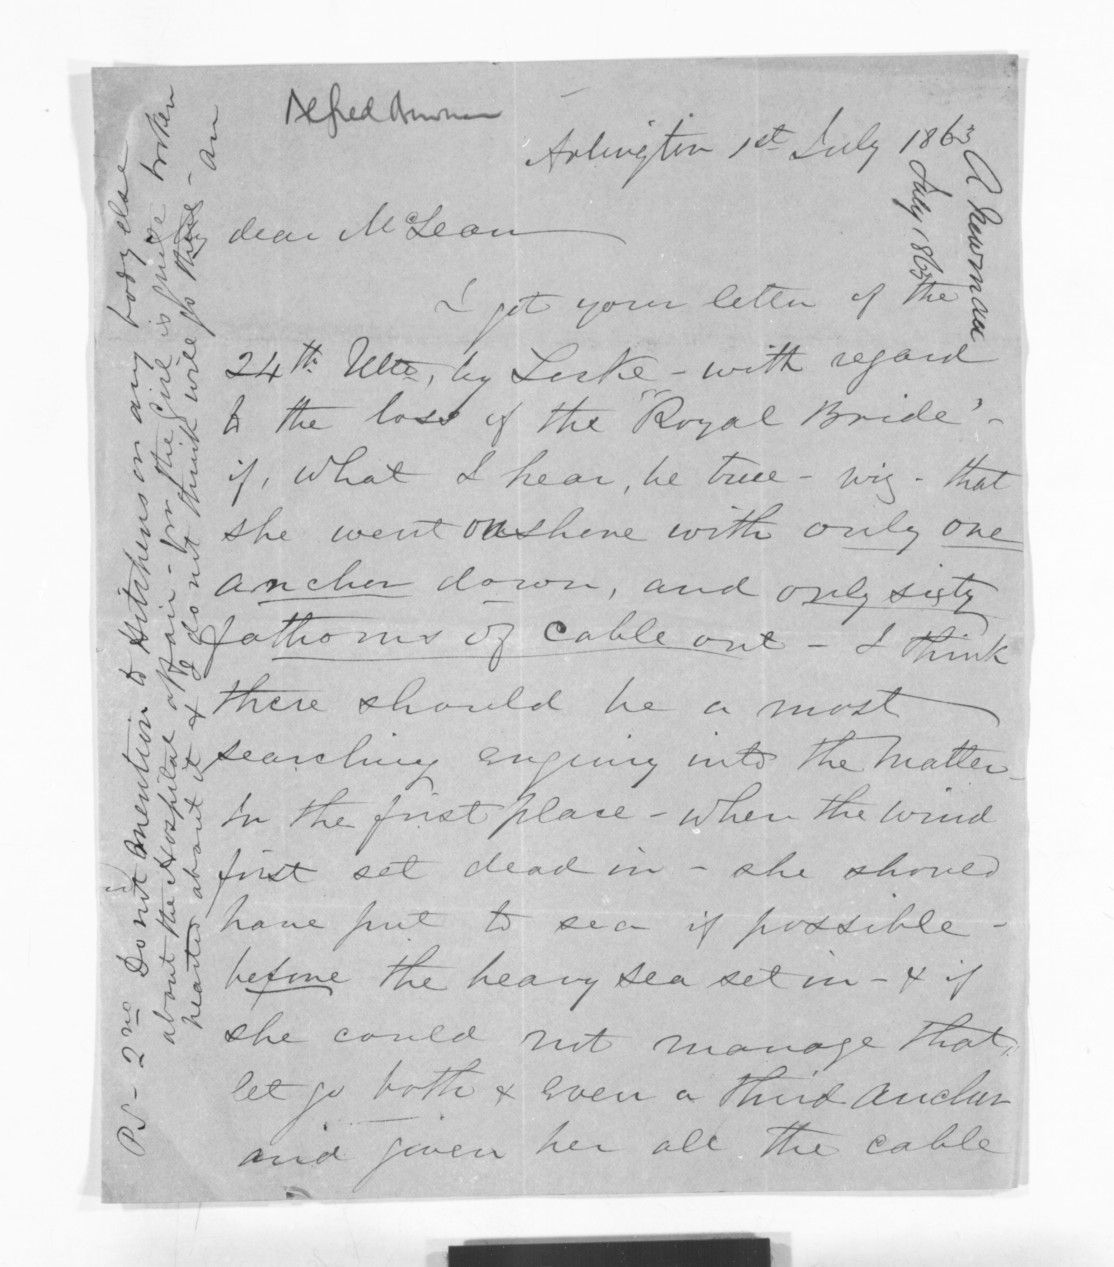 Alfred Newman
Arlington 1st July 1863
A Newman
July 1863
dear McLean
I got your letter of the
24th Ulto, by Leske - with regard
to the loss of the "Royal Bride" -
if, what I hear, be true - viz - that
she went on shore with only one
anchor down, and only sixty
fathoms of cable out - I think
there should be a most
searching enquiry into the matter -
In the first place - when the wind
first set dead in - she should
have put to sea if possible -
before the heavy sea set in - & if
she could not manage that,
let go both & even a third anchor
and given her all the cable
PS - 2nd Do not mention to Hitchens or any body else
about the Hospital affair - for the girl is quite broken
hearted about it & I do not think will go there - an